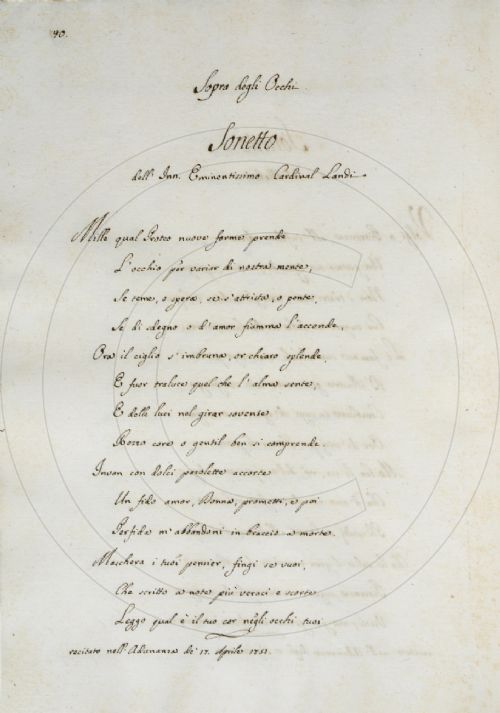 40.
Sopra degli Occhi
Sonetto
dell' Inn. Eminentissimo Cardinal Landi.
Mille qual Proteo nuove forme prende
L'occhio per variar di nostra mente,
Se teme, o spera, se s'attrista, o pente,
Se di sdegno o d'amor fiamma l'accende.
Ora il ciglio s'imbruna, or chiaro splende,
E fuor traluce quel che l'alma sente,
E delle luci nel girar sovente
Rozzo core o gentil ben si comprende.
Invan con dolci parolette accorte
Un fido amor, Donna, prometti, e poi
Perfida m'abbandoni in braccio a morte.
Maschera i tuoi pensier, fingi se vuoi,
Che scritto a note più veraci e scorte
Leggo qual è il tuo cor negli occhi tuoi.
recitato nell'Adunanza de' 17. Aprile 1751.